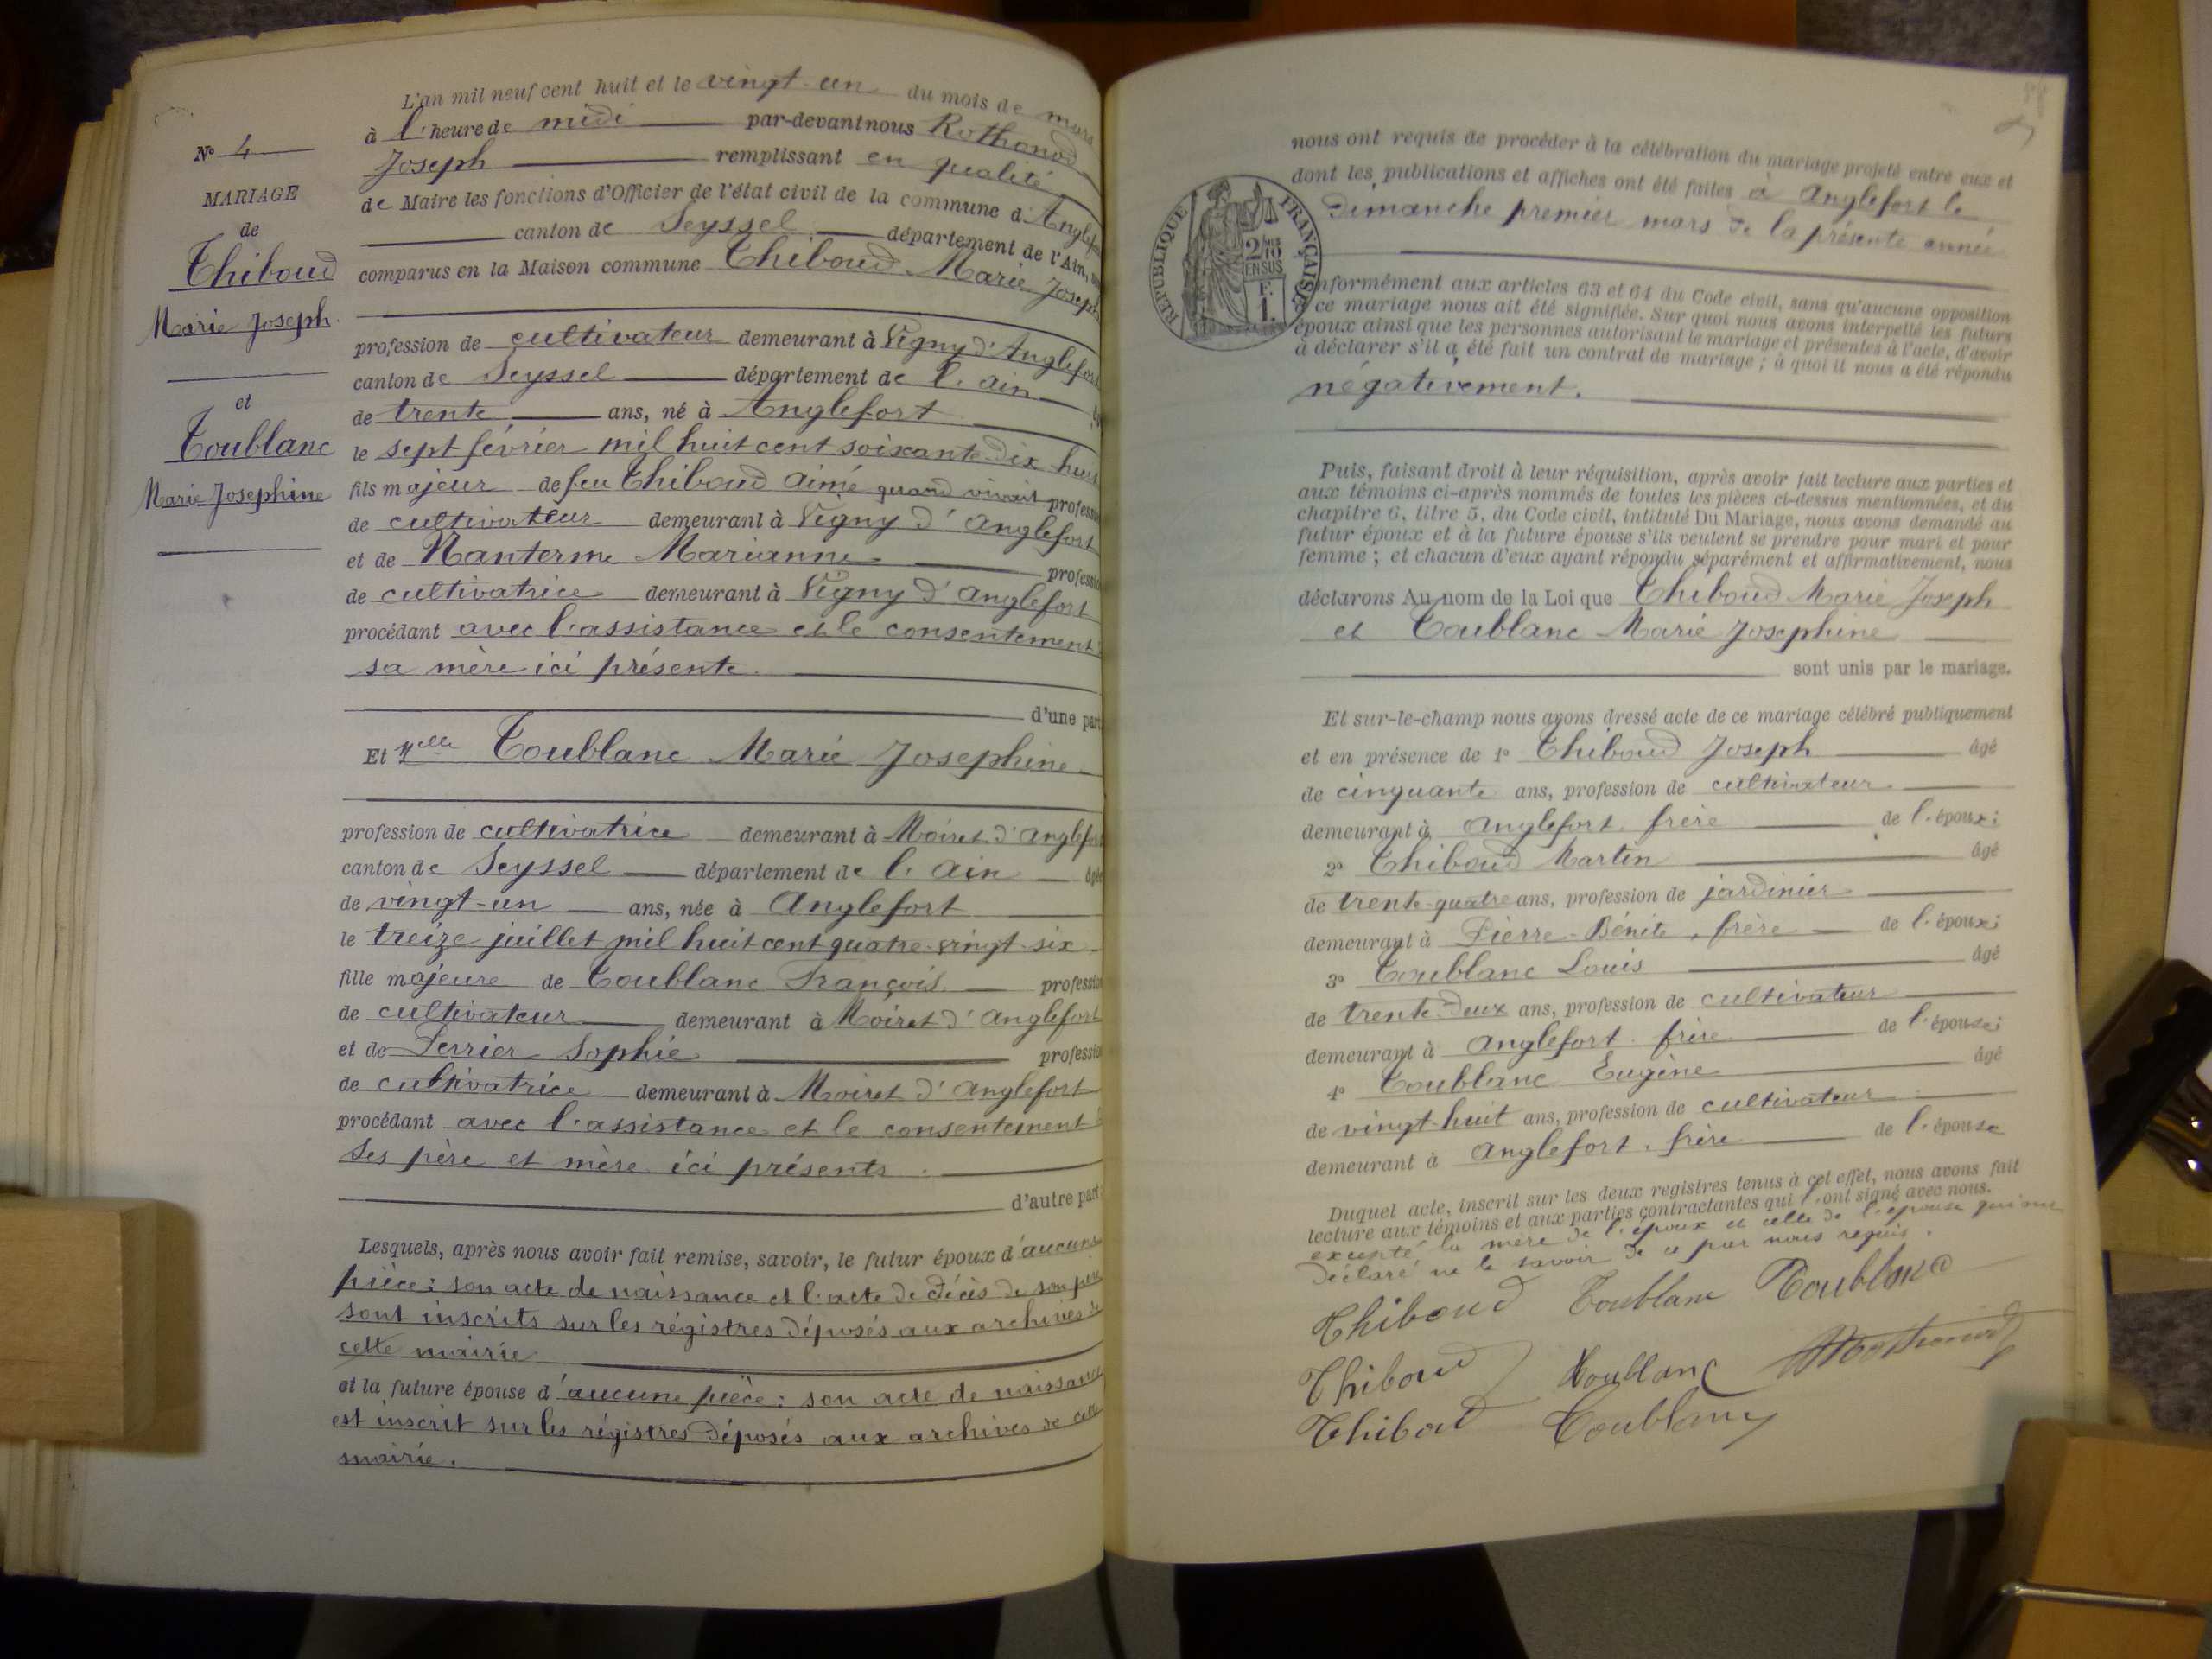 N° 4
MARIAGE
de
Thiboud
Marie Joseph.
et
Toublanc
Marie Josephine
L'an mil neuf cent huit et le vingt-un du mois de mars
à l'heure de midi par-devant nous Rothonod
Joseph remplissant en qualité
de Maire les fonctions d'Officier de l'état civil de la commune d'Anglefort
canton de Seyssel département de l'Ain,
comparus en la Maison commune Thiboud Marie Joseph
profession de cultivateur demeurant à Vigny d'Anglefort
canton de Seyssel département de l'ain
de trente ans, né à Anglefort
le sept février mil huit cent soixante-dix-huit
fils majeur de feu Thiboud Aimé quand vivait profession
de cultivateur demeurant à Vigny d'Anglefort
et de Nanterme Marianne profession
de cultivatrice demeurant à Vigny d'Anglefort
procédant avec l'assistance et le consentement
sa mère ici présente.
d'une part
Et Melle Toublanc Marie Josephine
profession de cultivatrice demeurant à Moiret d'Anglefort
canton de Seyssel département de l'Ain âgée
de vingt-un ans, née à Anglefort
le treize juillet mil huit cent quatre-vingt-six
fille majeure de Toublanc François profession
de cultivateur demeurant à Moiret d'Anglefort
et de Perrier Sophie profession
de cultivatrice demeurant à Moiret d'Anglefort
procédant avec l'assistance et le consentement
ses père et mère ici présents.
d'autre part
Lesquels, après nous avoir fait remise, savoir, le futur époux d'aucune
pièce: son acte de naissance et l'acte de décès de son père
sont inscrits sur les régistres déposés aux archives de
cette mairie
et la future épouse d'aucune pièce: son acte de naissance
est inscrit sur les régistres déposés aux archives de cette
mairie.
nous ont requis de procéder à la célébration du mariage projeté entre eux et
dont les publications et affiches ont été faites à Anglefort le
dimanche premier mars de la présente année
REPUBLIQUE FRANÇAISE
2/10
EN SUS
F.
1.
conformément aux articles 63 et 64 du Code civil, sans qu'aucune opposition
à ce mariage nous ait été signifiée. Sur quoi nous avons interpellé les futurs
époux ainsi que les personnes autorisant le mariage et présentes à l'acte, d'avoir
à déclarer s'il a été fait un contrat de mariage; à quoi il nous a été répondu
négativement.
Puis, faisant droit à leur réquisition, après avoir fait lecture aux parties et
aux témoins ci-après nommés de toutes les pièces ci-dessus mentionnées, et du
chapitre 6, titre 5, du Code civil, intitulé Du Mariage, nous avons demandé au
futur époux et à la future épouse s'ils veulent se prendre pour mari et pour
femme; et chacun d'eux ayant répondu séparément et affirmativement, nous
déclarons Au nom de la Loi que Thiboud Marie Joseph
et Toublanc Marie Josephine
sont unis par le mariage.
Et sur-le-champ nous avons dressé acte de ce mariage célébré publiquement
et en présence de 1° Thiboud Joseph âgé
de cinquante ans, profession de cultivateur
demeurant à Anglefort. frère de l'époux;
2° Thiboud Martin âgé
de trente-quatre ans, profession de jardinier
demeurant à Pierre-Bénite, frère de l'époux;
3° Toublanc Louis âgé
de trente-deux ans, profession de cultivateur
demeurant à Anglefort. frère de l'épouse;
4° Toublanc Eugène âgé
de vingt-huit ans, profession de cultivateur
demeurant à Anglefort. frère de l'épouse
Duquel acte, inscrit sur les deux registres tenus à cet effet, nous avons fait
lecture aux témoins et aux parties contractantes qui l'ont signé avec nous.
excepté la mère de l'époux et celle de l'épouse qui ont
déclaré ne le savoir de ce par nous requis.
Thiboud Toublanc Toublanc
Thiboud Toublanc Rothonod
Thiboud Toublanc